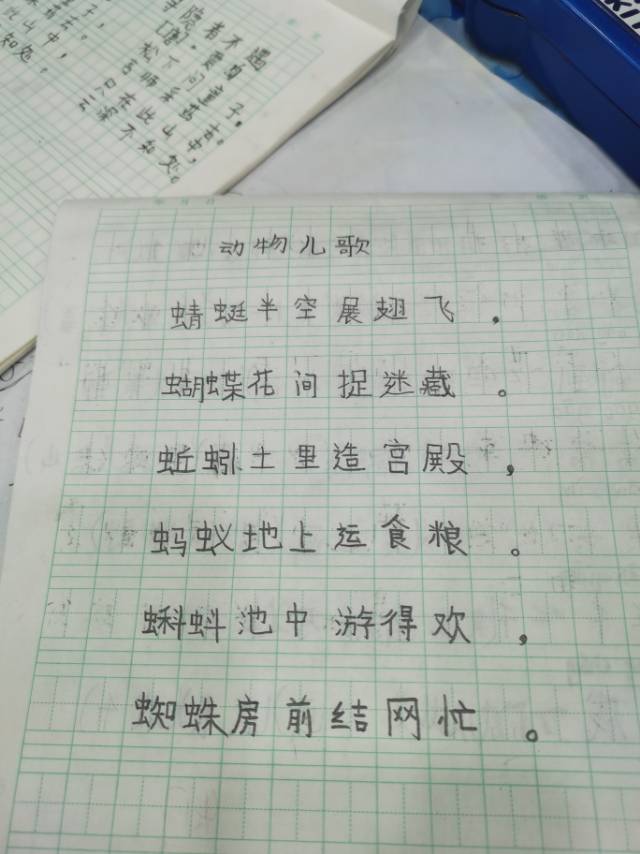 动物儿歌
蜻蜓半空展翅飞，
蝴蝶花间捉迷藏。
蚯蚓土里造宫殿，
蚂蚁地上运食粮。
蝌蚪池中游得欢，
蜘蛛房前结网忙。
者不遇
松下问童子，
言师采药去。
只在此山中，
云深不知处。
山中，
知处。